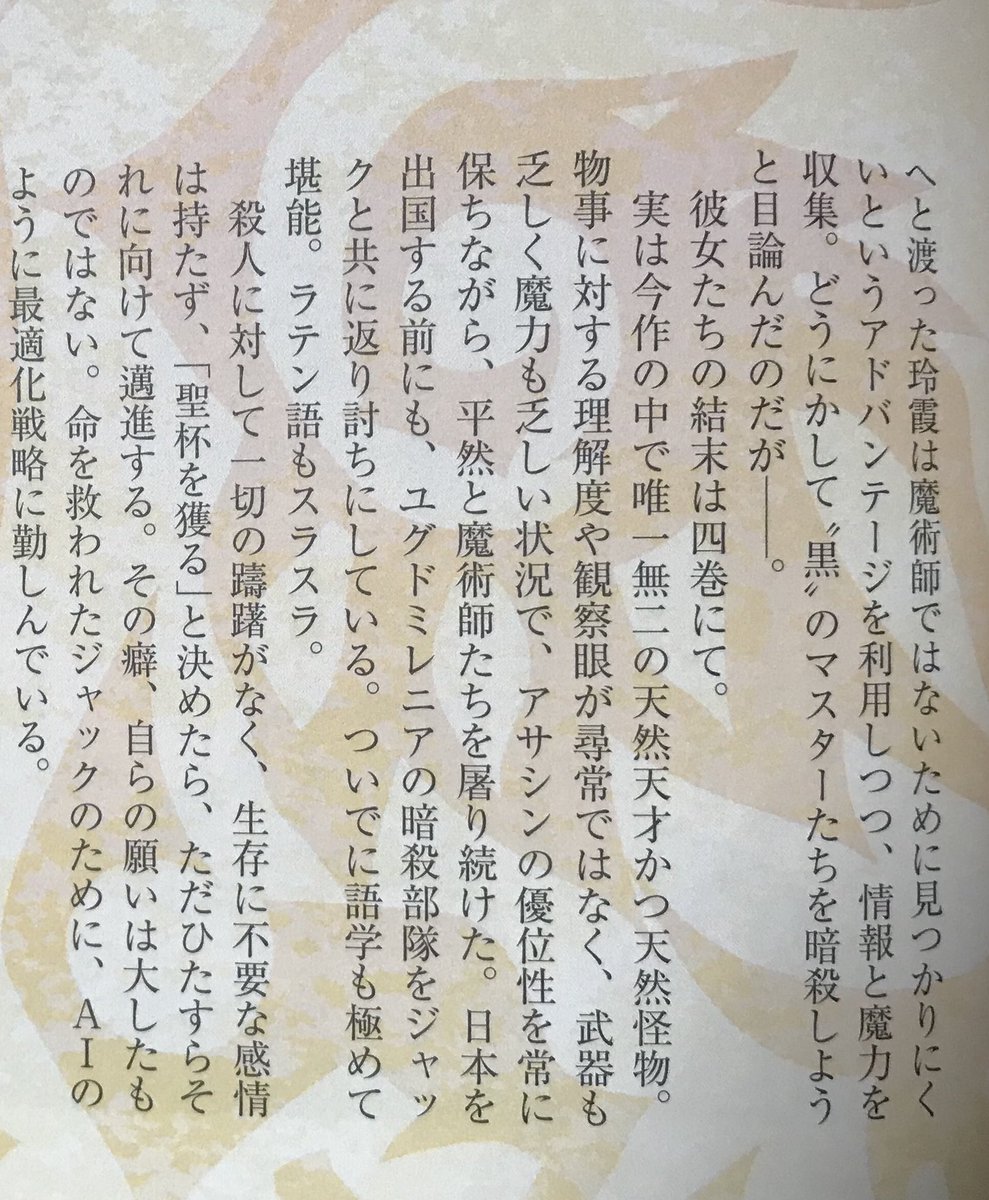 へと渡った玲霞は魔術師ではないために見つかりにく
いというアドバンテージを利用しつつ、情報と魔力を
収集。どうにかして〝黒〟のマスターたちを暗殺しよう
と目論んだのだが――。
彼女たちの結末は四巻にて。
実は今作の中で唯一無二の天然天才かつ天然怪物。
物事に対する理解度や観察眼が尋常ではなく、武器も
乏しく魔力も乏しい状況で、アサシンの優位性を常に
保ちながら、平然と魔術師たちを屠り続けた。日本を
出国する前にも、ユグドミレニアの暗殺部隊をジャッ
クと共に返り討ちにしている。ついでに語学も極めて
堪能。ラテン語もスラスラ。
殺人に対して一切の躊躇がなく、生存に不要な感情
は持たず、「聖杯を獲る」と決めたら、ただひたすらそ
れに向けて邁進する。その癖、自らの願いは大したも
のではない。命を救われたジャックのために、AIの
ように最適化戦略に勤しんでいる。